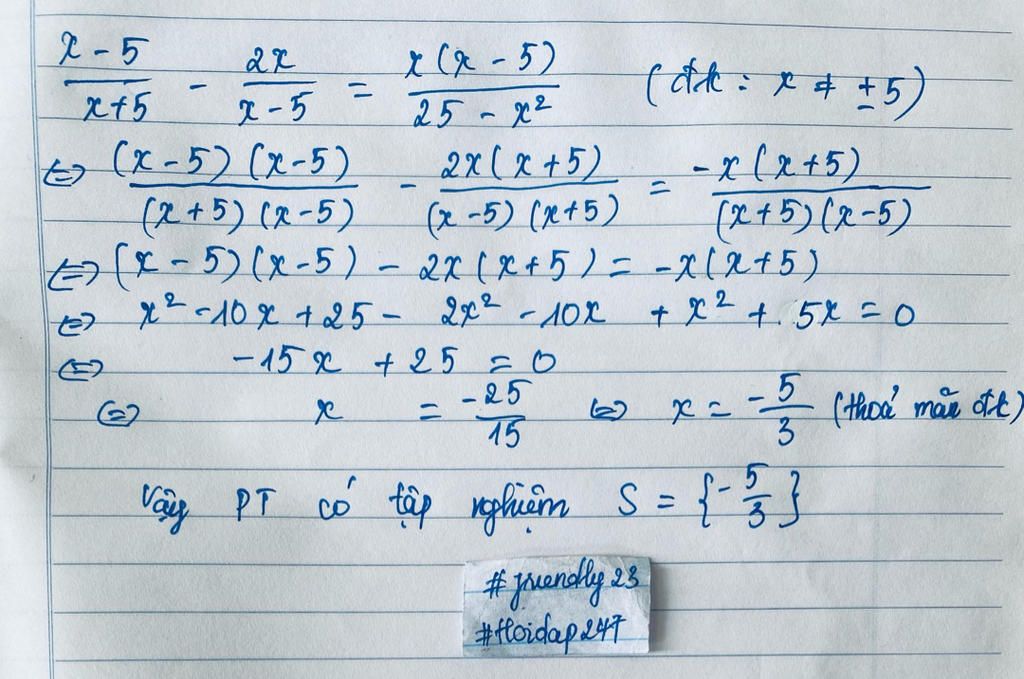 x - 5 / x + 5 - 2x / x - 5 = x(x - 5) / 25 - x² (đk : x ≠ ± 5)
⇔ (x - 5)(x - 5) / (x + 5)(x - 5) - 2x(x + 5) / (x - 5)(x + 5) = -x(x + 5) / (x + 5)(x - 5)
⇔ (x - 5)(x - 5) - 2x(x + 5) = -x(x + 5)
⇔ x² - 10x + 25 - 2x² - 10x + x² + 5x = 0
⇔ -15x + 25 = 0
⇔ x = -25 / 15 ⇔ x = -5 / 3 (thoả mãn đk)
Vậy PT có tập nghiệm S = {-5 / 3}
#friendly23
#Hoidap247